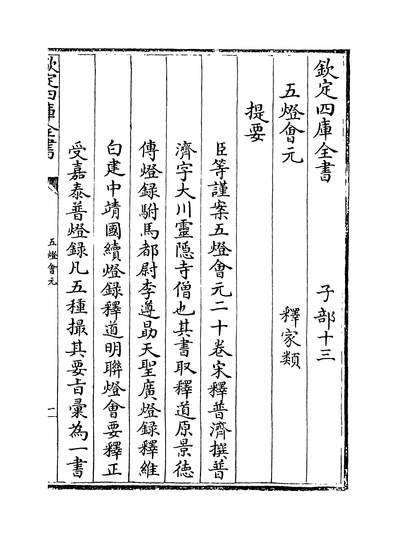 欽定四庫全書 子部十三
五燈會元 釋家類
提要
臣等謹案五燈會元二十卷宋釋普濟撰普
濟字大川靈隠寺僧也其書取釋道原景德
傳燈録駙馬都尉李遵勗天聖廣燈録釋維
白建中靖國續燈録釋道明聯燈會要釋正
受嘉泰普燈録凡五種撮其要㫖彚為一書
欽定四庫全書
五燈會元
一